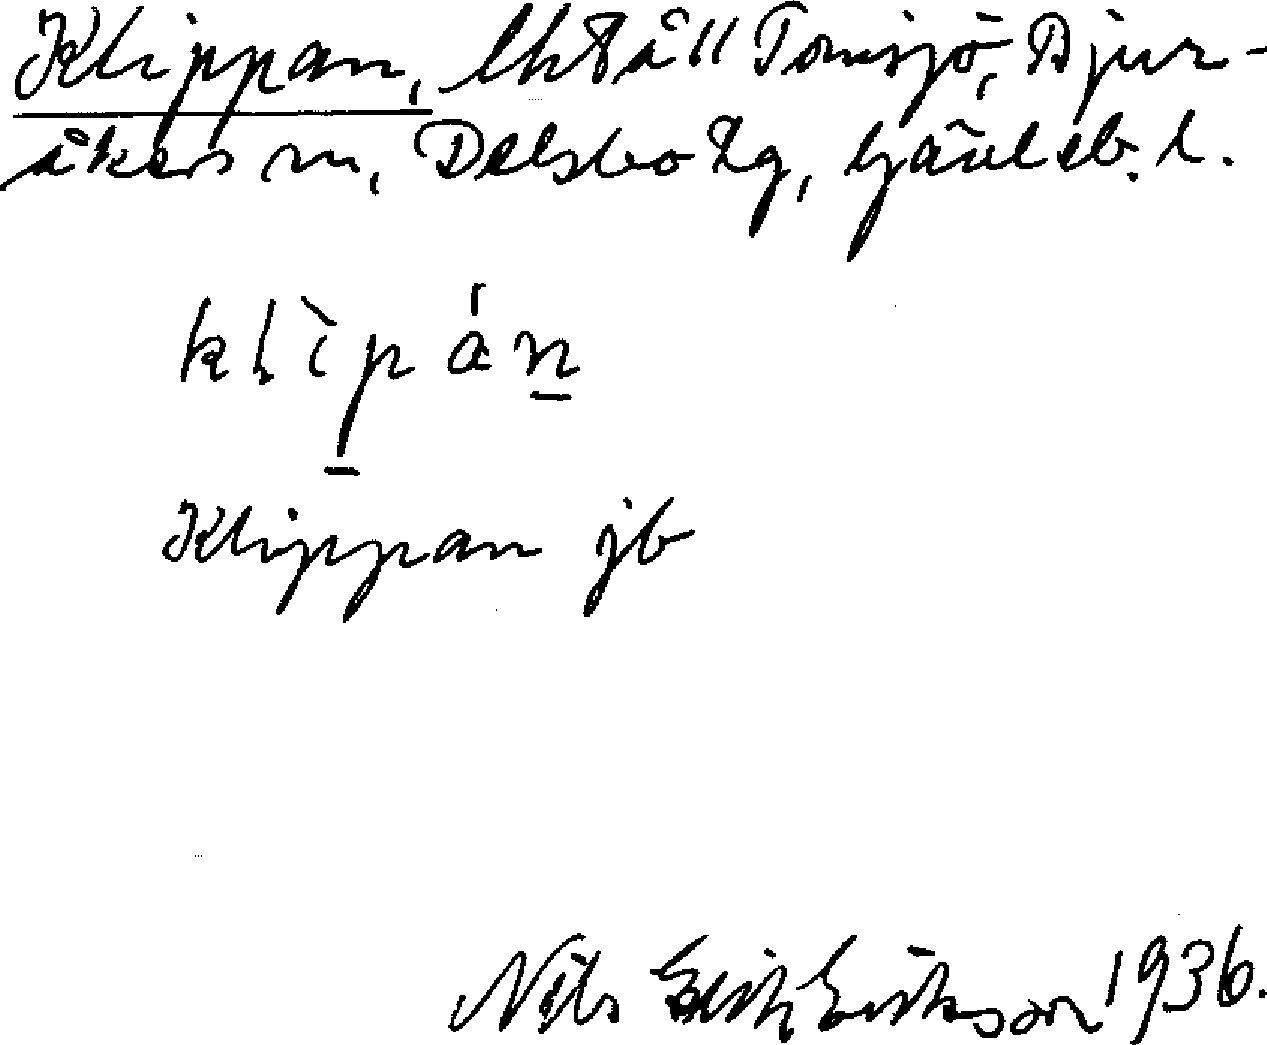 Klippan, lht å Tomsjö, Bjur-
åkers sn, Delsbo tg, Gävleb. l.
kḷìpán
Klippan jb
Nils Erik Eriksson 1936.